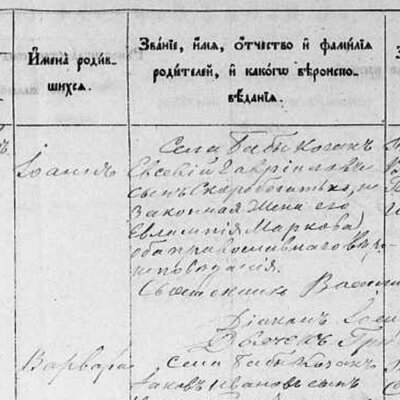 Имена родив-
шихся.
Званіе, имя, отчество и фамилія
родителей, и какого вѣроиспо-
вѣданія.
Іоаннъ
Села Бабы козакъ
Евсевій Гавріиловъ
сынъ Скоробогатько, и
законная жена его
Евлампія Маркова,
оба православнаго вѣро-
исповѣданія.
Священникъ
Діаконъ
Дьячекъ
Варвара
Села Бабы козакъ
Іаковъ Ивановъ сынъ